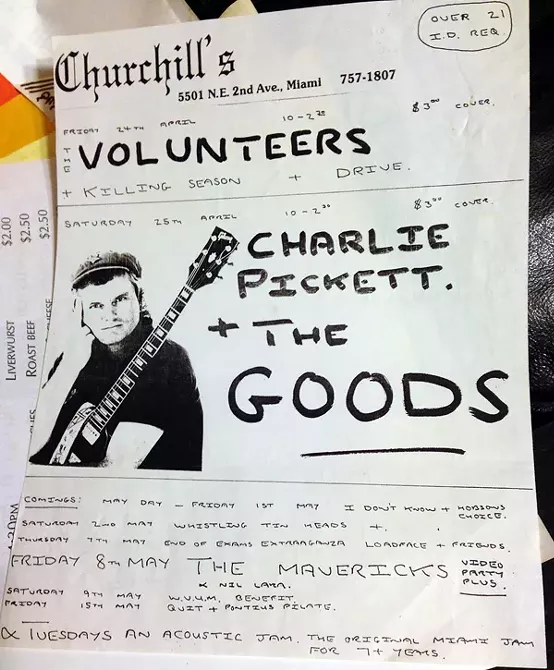 OVER 21
I.D. REQ.
Churchill's
5501 N.E. 2nd Ave., Miami 757-1807
FRIDAY 24TH APRIL 10-2³⁰ $3⁰⁰ COVER.
THE VOLUNTEERS
+ KILLING SEASON + DRIVE.
SATURDAY 25TH APRIL 10-2³⁰ $3⁰⁰ COVER.
CHARLIE
PICKETT.
+ THE
GOODS
COMINGS: MAY DAY – FRIDAY 1ST MAY I DON'T KNOW + HOBSONS
CHOICE.
SATURDAY 2ND MAY WHISTLING TIN HEADS +.
THURSDAY 7TH MAY END OF EXAMS EXTRAGANZA LOADFACE + FRIENDS.
FRIDAY 8TH MAY THE MAVERICKS VIDEO
PARTY
PLUS.
& NIL LARA.
SATURDAY 9TH MAY W.V.U.M. BENEFIT.
FRIDAY 15TH MAY QUIT + PONTIUS PILATE.
& TUESDAYS AN ACOUSTIC JAM. THE ORIGINAL MIAMI JAM
FOR 7+ YEARS.
$2.00
$2.50
$2.50
LIVERWURST
ROAST BEEF